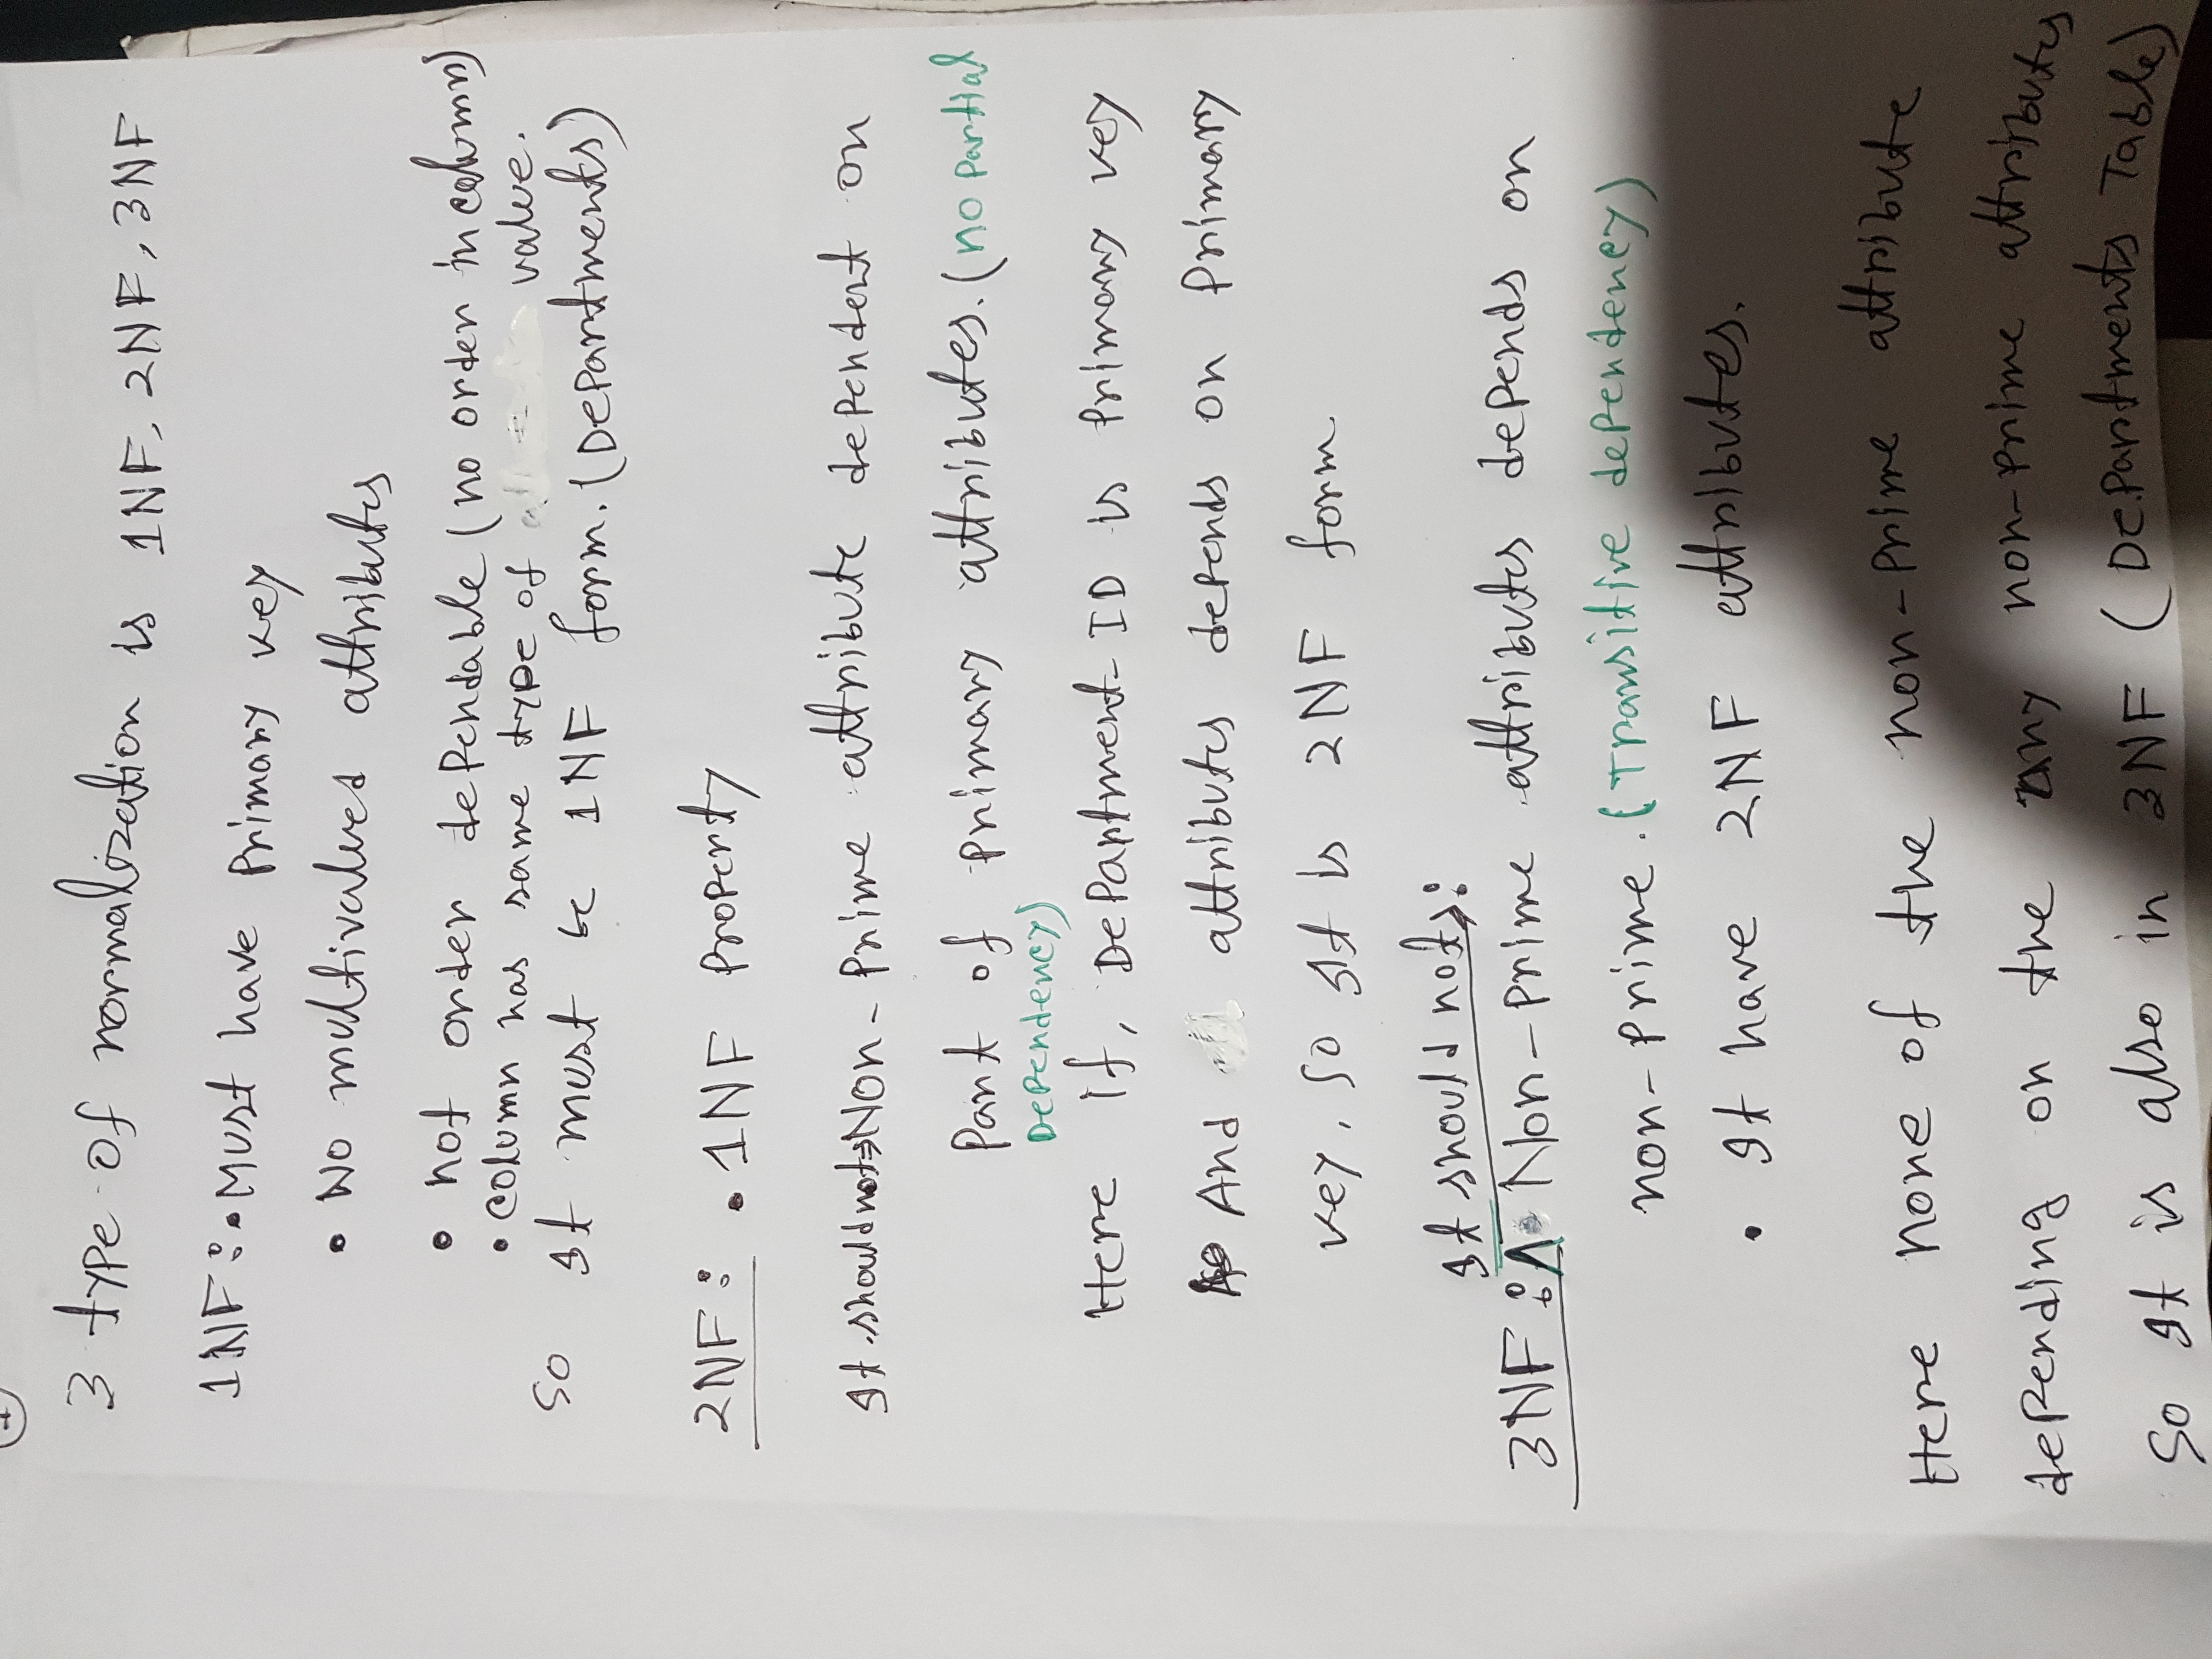 3 type of normalization is 1NF, 2NF, 3NF
1NF: • Must have Primary key
• No multivalued attributes
• not order dependable (no order in column)
• column has same type of value.
So It must be 1NF form. (Departments)
2NF: • 1NF Property
It should not → Non-Prime attribute dependent on
Part of primary attributes. (no partial
Dependency)
Here if, Department-ID is Primary key
And attributes depends on Primary
key, So It is 2NF form.
It should not →:
3NF: Non-prime attributes depends on
non-prime. (Transitive dependency)
• It have 2NF attributes.
Here none of the non-prime attribute
depending on the any non-prime attributes
So It is also in 3NF (Departments Table)